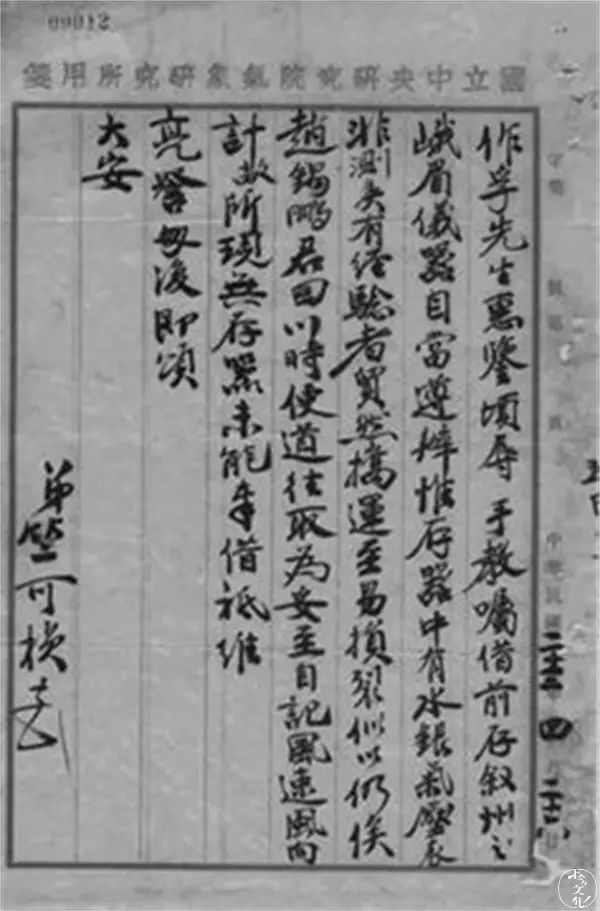 00012
國立中央研究院氣象研究所用箋
作孚先生惠鑒頃辱 手教囑借前存敘州之
峨眉儀器自當遵辦惟存器中有水銀氣壓表
非測矢有經驗者貿然攜運至易損裂似以仍俟
趙錫鵬君回川時便道往取為妥至自記風速風向
計敝所現無存器未能奉借祗維
亮詧每復即頌
大安
弟竺可楨
字第
號第 頁
中華民國二十三年四月二十六日